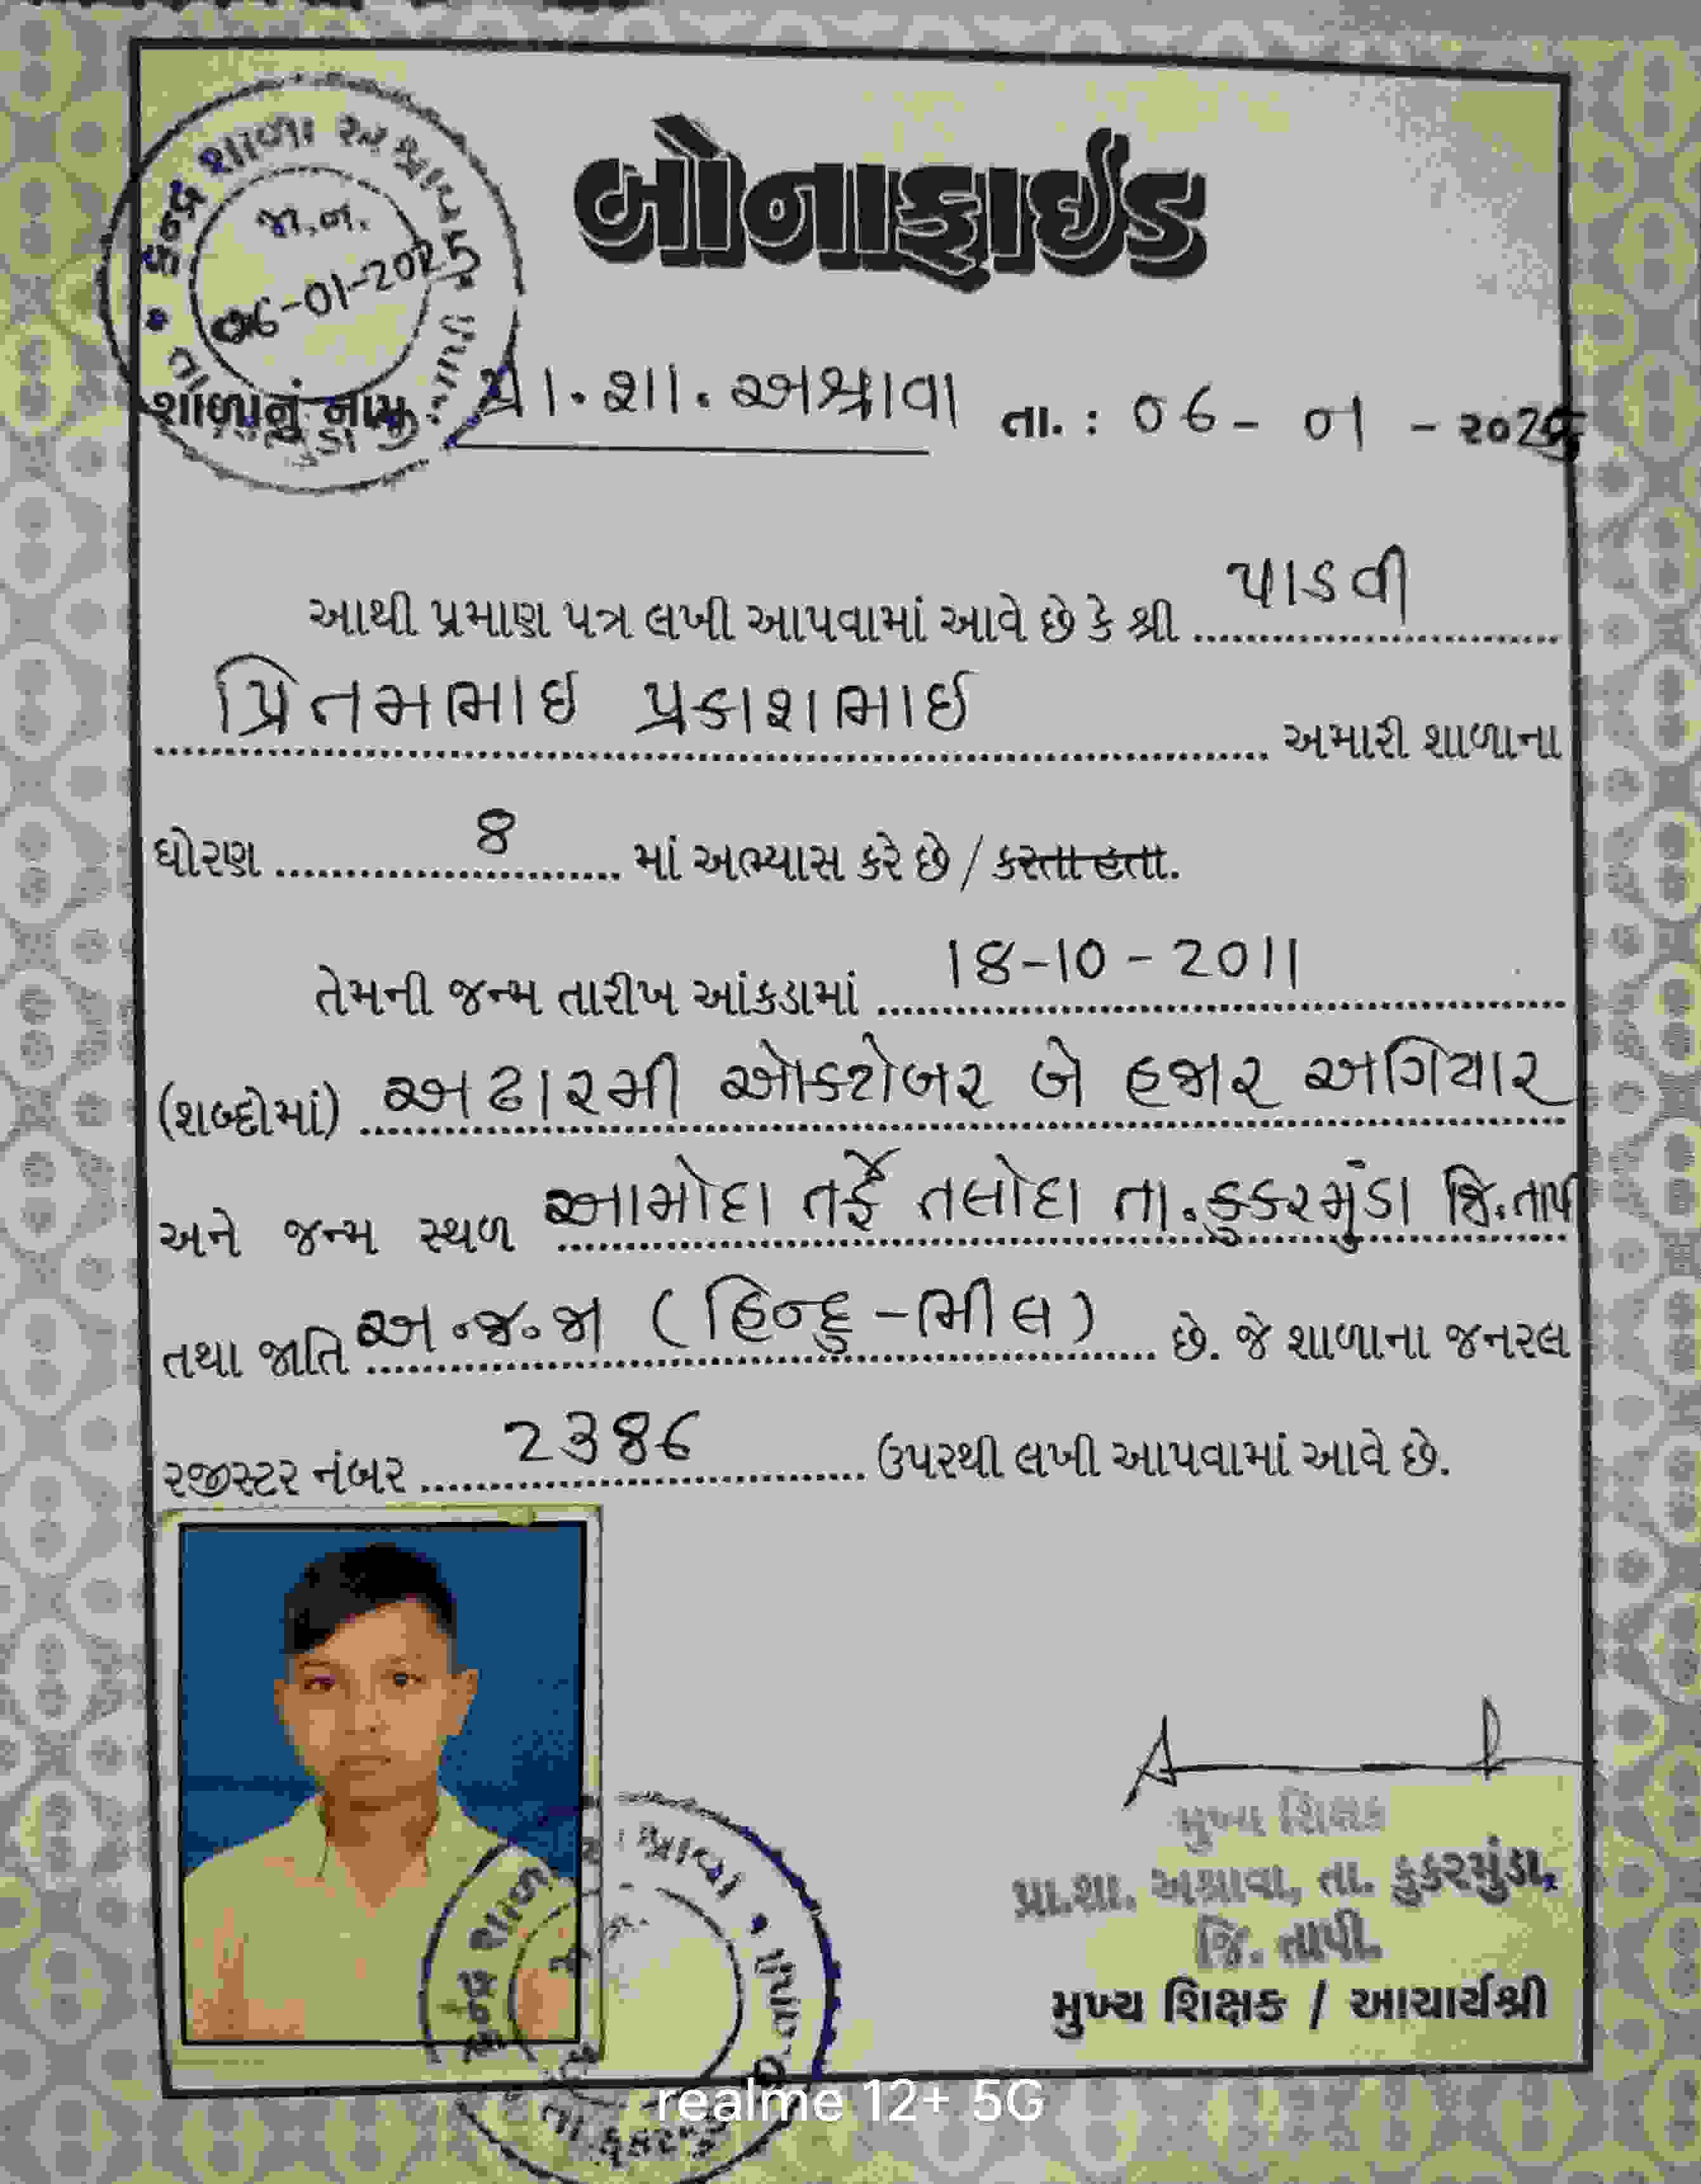 બોનાફાઈડ
કેન્દ્ર શાળા અશ્રાવા
જા.ન.
06-01-2025
શાળાનું નામ : પ્રા.શા.અશ્રાવા તા. : 06 - 01 - ૨૦25
આથી પ્રમાણ પત્ર લખી આપવામાં આવે છે કે શ્રી પાડવી
પ્રિતમભાઇ પ્રકાશભાઇ અમારી શાળાના
ધોરણ 8 માં અભ્યાસ કરે છે / કરતા હતા.
તેમની જન્મ તારીખ આંકડામાં 18-10-2011
(શબ્દોમાં) અઢારમી ઓક્ટોબર બે હજાર અગિયાર
અને જન્મ સ્થળ આમોદા તર્ફે તલોદા તા.કુકરમુંડા જિ.તાપી
તથા જાતિ અ.જ.જા (હિન્દુ-ભીલ) છે. જે શાળાના જનરલ
રજીસ્ટર નંબર 2386 ઉપરથી લખી આપવામાં આવે છે.
મુખ્ય શિક્ષક
પ્રા.શા. અશ્રાવા, તા. કુકરમુંડા,
જિ. તાપી.
મુખ્ય શિક્ષક / આચાર્યશ્રી
કેન્દ્ર શાળા
realme 12+ 5G